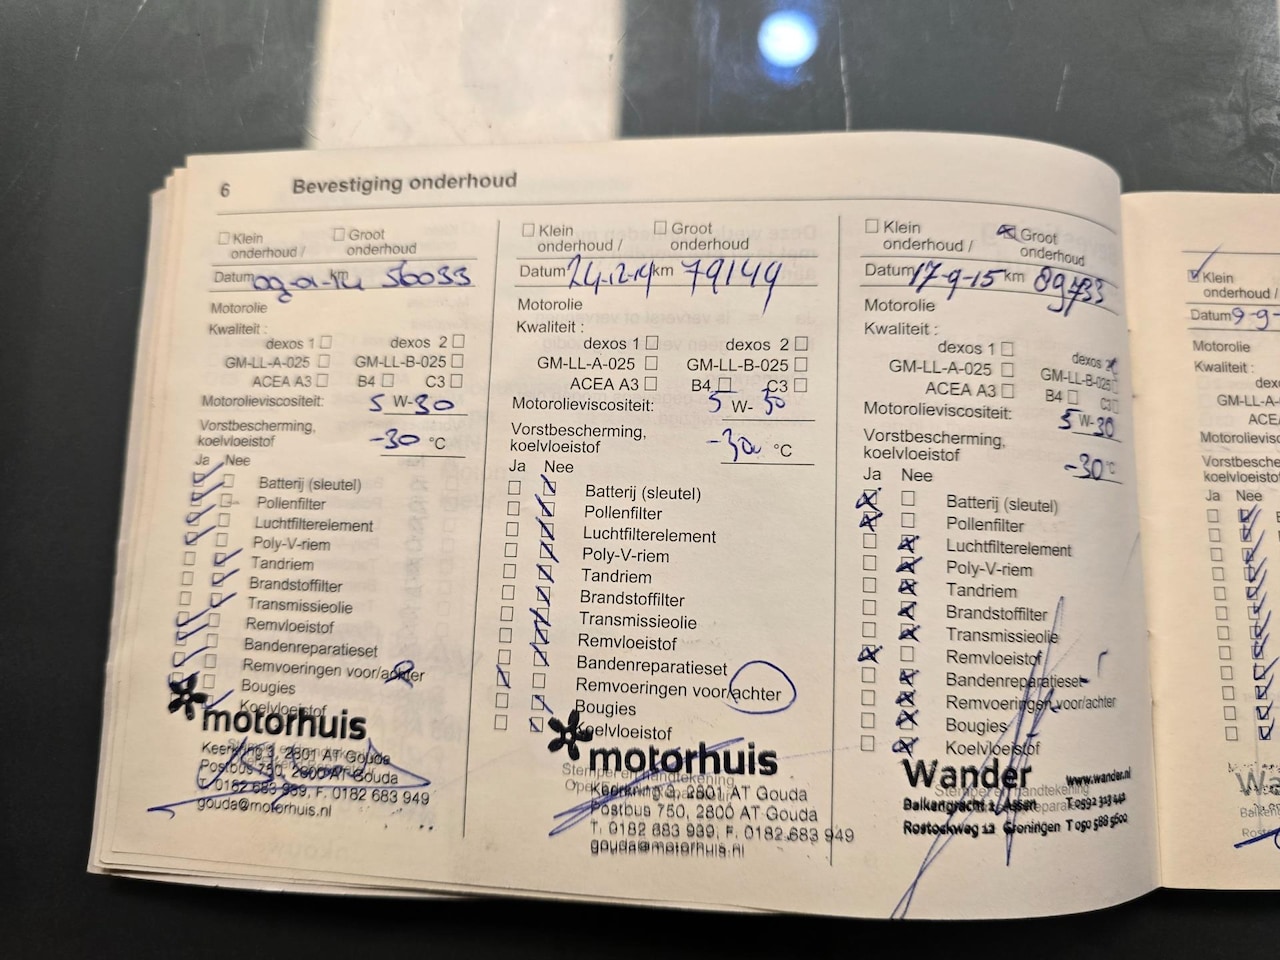 6 Bevestiging onderhoud
Klein onderhoud / Groot onderhoud
Datum 09-01-14 km 56033
Motorolie
Kwaliteit :
dexos 1 dexos 2
GM-LL-A-025 GM-LL-B-025
ACEA A3 B4 C3
Motorolieviscositeit: 5 W-30
Vorstbescherming,
koelvloeistof -30 °C
Ja Nee
Batterij (sleutel)
Pollenfilter
Luchtfilterelement
Poly-V-riem
Tandriem
Brandstoffilter
Transmissieolie
Remvloeistof
Bandenreparatieset
Remvoeringen voor/achter
Bougies
Koelvloeistof
motorhuis
Keerkring 3, 2801 AT Gouda
Postbus 750, 2800 AT Gouda
T. 0182 683 939, F. 0182 683 949
gouda@motorhuis.nl
Klein onderhoud / Groot onderhoud
Datum 24-12-14 km 79149
Motorolie
Kwaliteit :
dexos 1 dexos 2
GM-LL-A-025 GM-LL-B-025
ACEA A3 B4 C3
Motorolieviscositeit: 5 W- 30
Vorstbescherming,
koelvloeistof -30 °C
Ja Nee
Batterij (sleutel)
Pollenfilter
Luchtfilterelement
Poly-V-riem
Tandriem
Brandstoffilter
Transmissieolie
Remvloeistof
Bandenreparatieset
Remvoeringen voor/achter
Bougies
Koelvloeistof
motorhuis
Stempel en handtekening
Keerkring 3, 2801 AT Gouda
Postbus 750, 2800 AT Gouda
T. 0182 683 939, F. 0182 683 949
gouda@motorhuis.nl
Klein onderhoud / Groot onderhoud
Datum 17-9-15 km 89733
Motorolie
Kwaliteit :
dexos 1 dexos 2
GM-LL-A-025 GM-LL-B-025
ACEA A3 B4 C3
Motorolieviscositeit: 5 W-30
Vorstbescherming,
koelvloeistof -30 °C
Ja Nee
Batterij (sleutel)
Pollenfilter
Luchtfilterelement
Poly-V-riem
Tandriem
Brandstoffilter
Transmissieolie
Remvloeistof
Bandenreparatieset
Remvoeringen voor/achter
Bougies
Koelvloeistof
Wander www.wander.nl
Stempel en handtekening
Balkengracht 2, Assen T 0592 313 442
Rostockweg 12 Groningen T 050 588 5600
Klein
onderhoud /
Datum 9-9-
Motorolie
Kwaliteit :
GM-LL-A-
Ja Nee